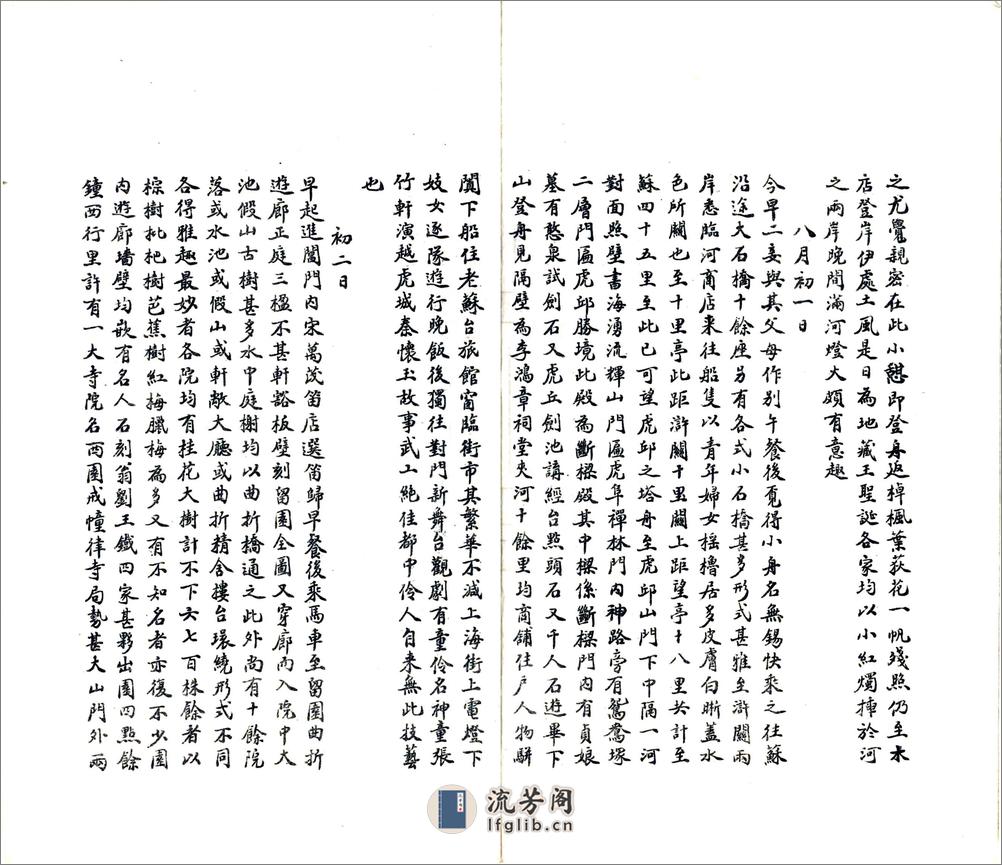 之尤覺親密在此小憩即登舟返棹楓葉荻花一帆殘照仍至木
店登岸伊處土風是日為地藏王聖誕各家均以小紅燭揷於河
之兩岸晚間滿河燈火頗有意趣
八月初一日
今早二妾與其父母作別午餐後覓得小舟名無錫快乘之往蘇
沿途大石橋十餘座另有各式小石橋甚多形式甚雅至滸關兩
岸悉臨河商店來往船隻以青年婦女榣櫓居多皮膚白晰蓋水
色所關也至十里亭此距滸關十里關上距望亭十八里共計至
蘇四十五里至此已可望虎邱之塔舟至虎邱山門下中隔一河
對面照壁書海湧流輝山門匾虎阜禪林門內神路旁有鴛鴦塚
二層門匾虎邱勝境此殿為斷樑殿其中樑係斷樑門內有貞娘
墓有憨泉試劍石又虎丘劍池講經台點頭石又千人石遊畢下
山登舟見隔壁為李鴻章祠堂夾河十餘里均商舖住戶人物駢
闐下船住老蘇台旅館窗臨街市其繁華不減上海街上電燈下
妓女逐隊遊行晚飯後獨往對門新舞台觀劇有童伶名神童張
竹軒演越虎城秦懷玉故事武工絶佳都中伶人自來無此技藝
也
初二日
早起進閶門內宋萬茂笛店選笛歸早餐後乘馬車至留園曲折
遊廊正庭三楹不甚軒豁板壁刻留園全圖又穿廊而入院中大
池假山古樹甚多水中庭榭均以曲折橋通之此外尚有十餘院
落或水池或假山或軒敞大廳或曲折精舍樓台環繞形式不同
各得雅趣最妙者各院均有桂花大樹計不下六七百株餘者以
棕樹枇杷樹芭蕉樹紅梅臘梅為多又有不知名者亦復不少園
內遊廊墻壁均嵌有名人石刻翁劉王鐵四家甚夥出園四點餘
鐘西行里許有一大寺院名西園戒幢律寺局勢甚大山門外兩
流芳阁
lfglib.cn